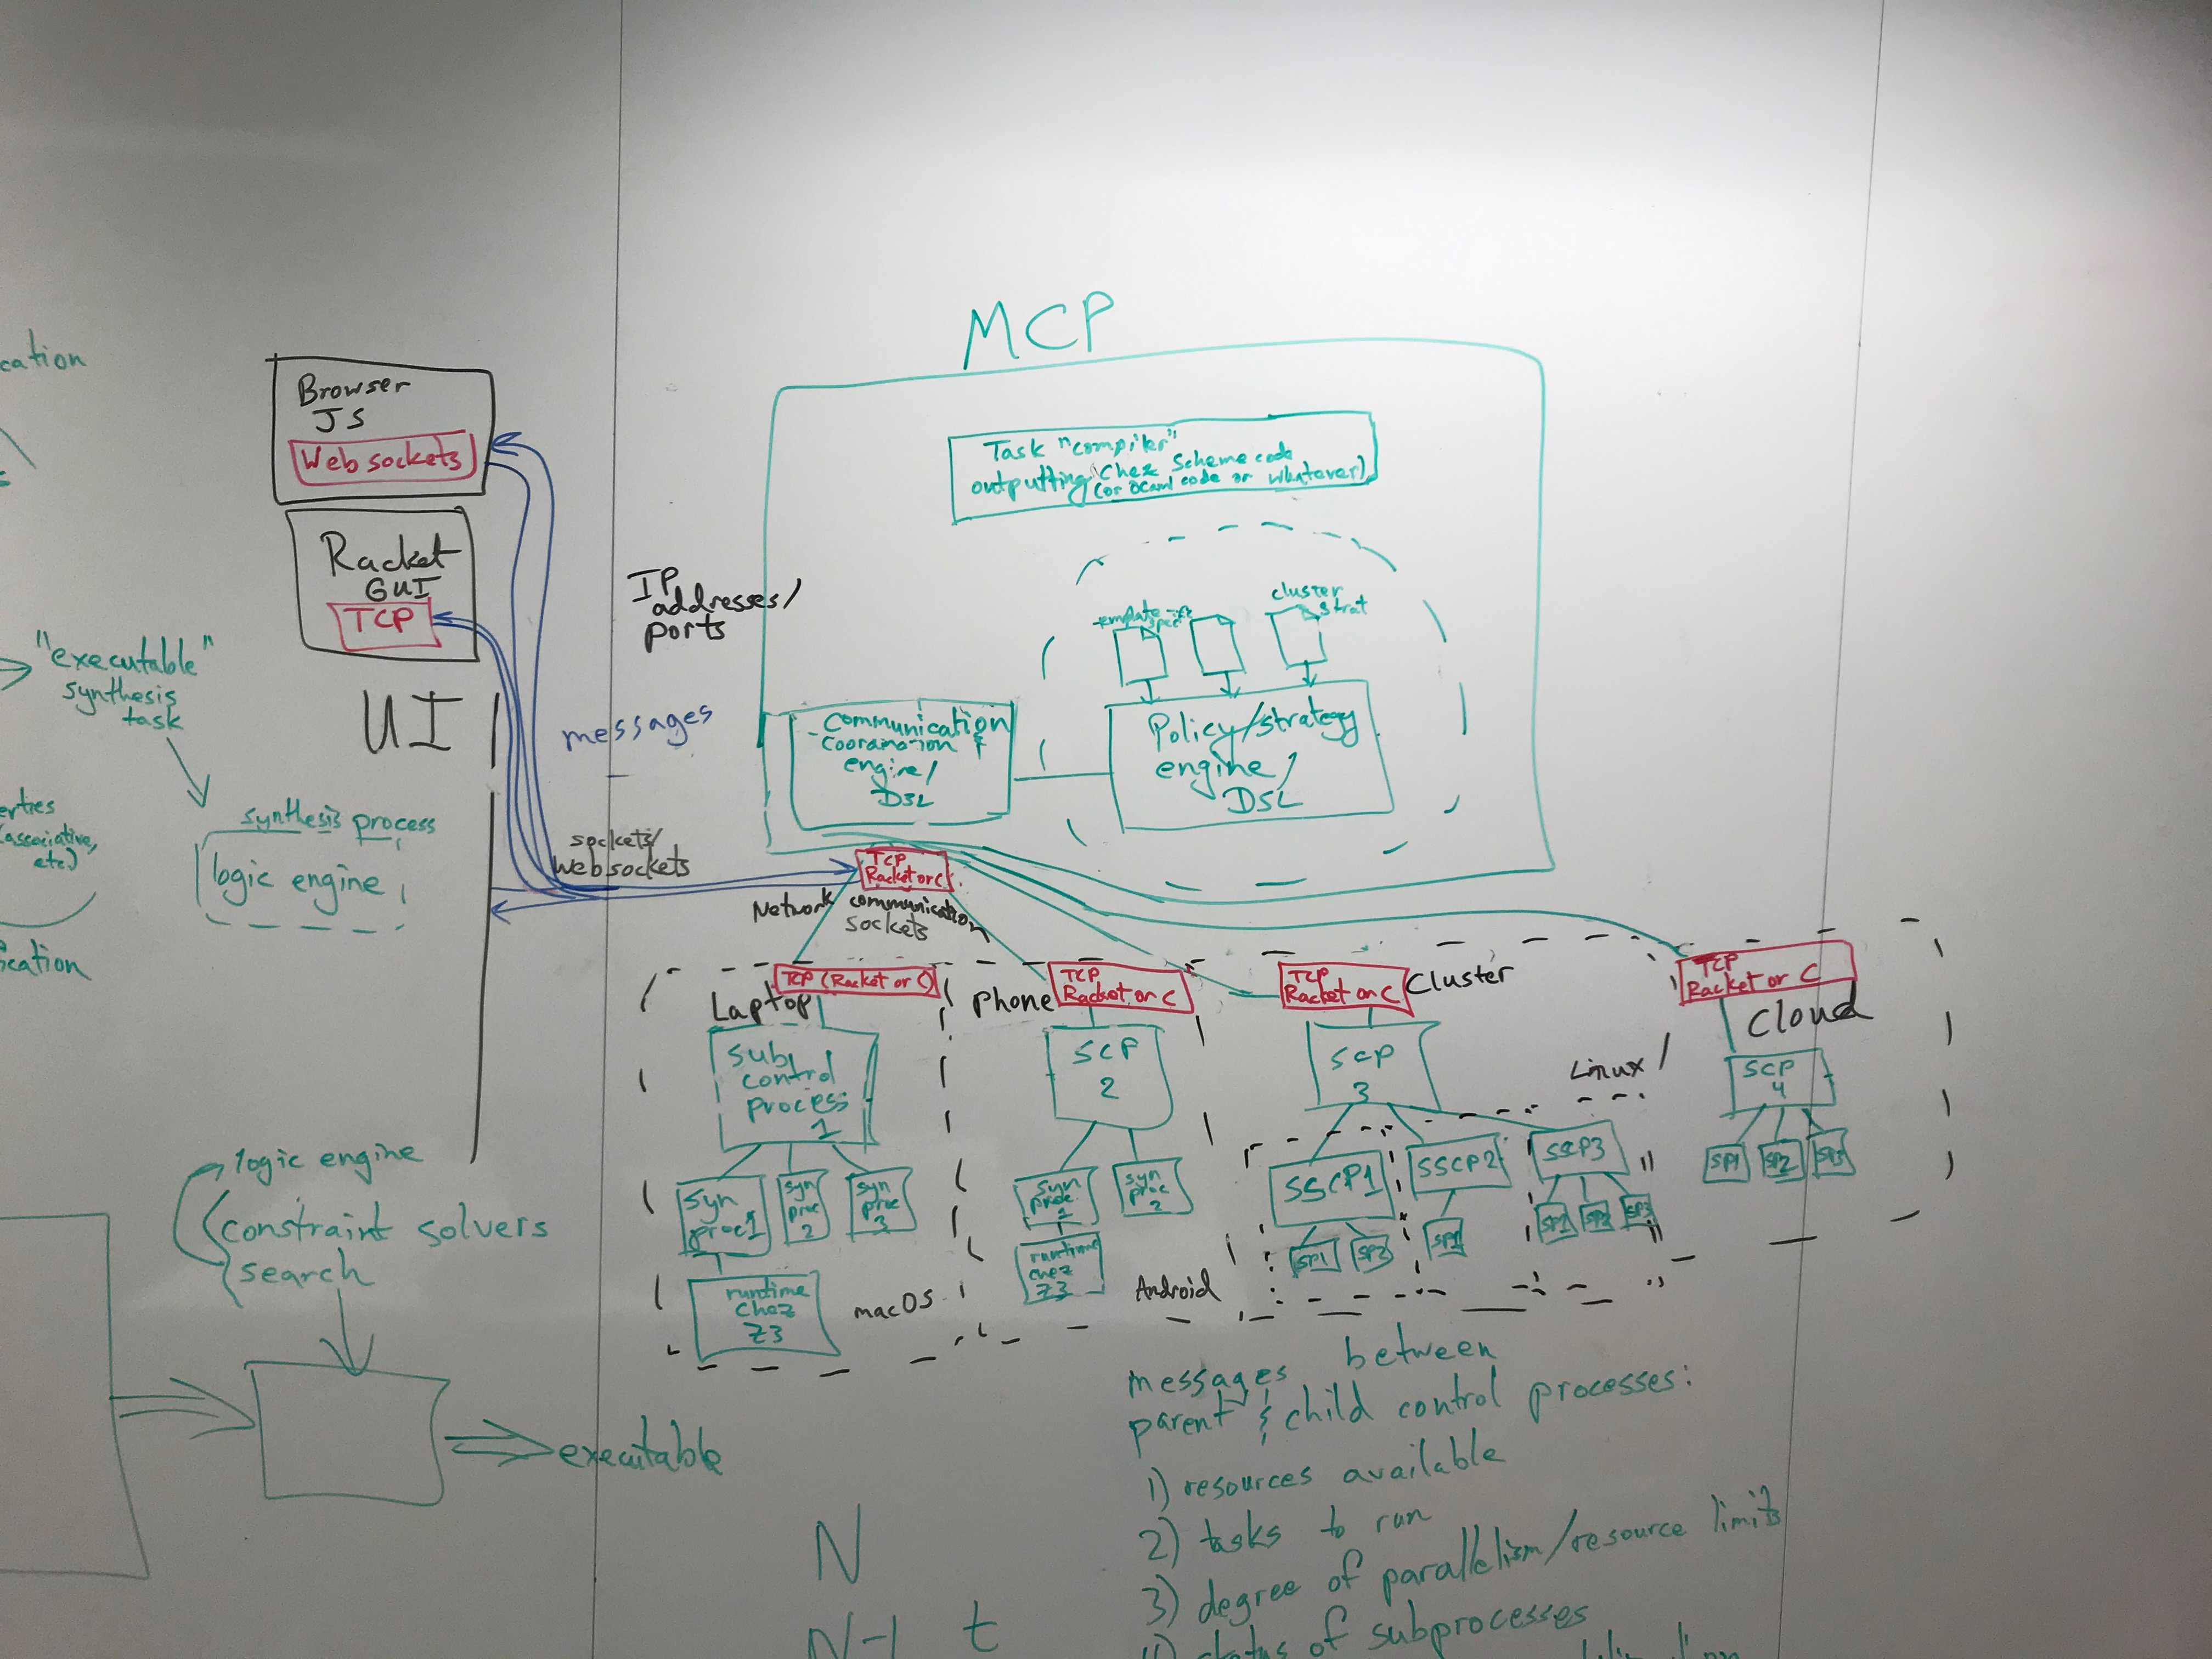 cation
"executable"
synthesis
task
synthesis process
logic engine
erties
(associative,
etc.)
ication
logic engine
constraint solvers
search
executable
Browser
JS
Web sockets
Racket
GUI
TCP
UI
IP
addresses/
ports
messages
sockets/
websockets
MCP
Task "compiler"
outputting Chez Scheme code
(or OCaml code or whatever)
cluster
strat
Communication
Coordination &
engine/
DSL
Policy/strategy
engine/
DSL
TCP
Racket or C
Network communication
sockets
TCP (Racket or C)
Laptop
sub
control
process
1
syn
proc1
syn
proc
2
syn
proc
3
runtime
chez
Z3
macOS
Phone
TCP
Racket or C
SCP
2
syn
proc
1
syn
proc
2
runtime
chez
Z3
Android
TCP
Racket or C
Cluster
SCP
3
Linux
SSCP1
SSCP2
SSCP3
SP1
SP2
SP1
SP1
SP2
SP3
TCP
Racket or C
Cloud
SCP
4
SP1
SP2
SP3
messages between
parent & child control processes:
1) resources available
2) tasks to run
3) degree of parallelism/resource limits
4) status of subprocesses
N
N-1 t